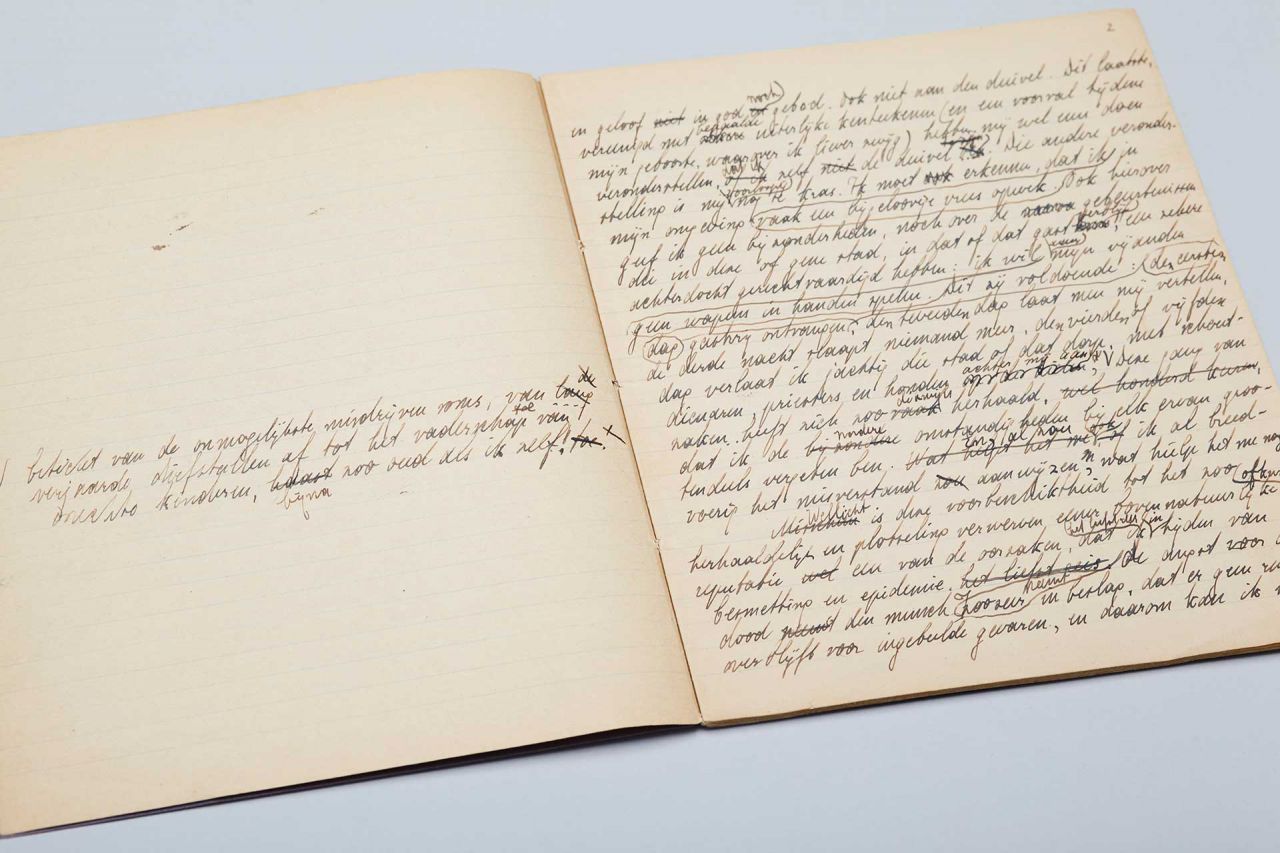 beticht van de onmogelijkste misdrijven soms, van lang de
verjaarde diefstallen af tot het vaderschap toe van
kinderen, haast zoo oud als ik zelf.
bijna
2
en geloof niet in god en noch gebod. Ook niet aan den duivel. Dit laatste,
vereenigd met bepaalde uiterlijke kenteekenen (en een voorval bij den
mijn geboorte, waarover ik liever zwijg) hebben mij wel eens doen
veronderstellen, dat ik zelf niet de duivel ben. Die andere veronder-
stelling is mij voorloopig nog te kras. Ik moet ook erkennen, dat ik in
mijn omgeving vaak een bijgeloovige vrees opwek. Ook hierover
geef ik geen bijzonderheden, noch over de gebeurtenissen
die in deze of gene stad, in dat of dat gast een zekere
achterdocht gerechtvaardigd hebben: ik wil mijn vijanden
geen wapens in handen spelen. Dit zij voldoende: den eersten
dag gastvrij ontvangen, den tweeden dag laat men mij vertellen,
de derde nacht slaapt niemand meer, den vierden of vijfden
dag verlaat ik jachtig die stad of dat dorp, met schout-
dienaren, priesters en honden achter mij aan. Deze gang van
zaken heeft zich zoo vaak herhaald, wel honderd keeren,
dat ik de bijzondere nadere omstandigheden bij elk ervan groo-
tendeels vergeten ben. Wat helpt het met of ik al breed-
voerig het misverstand zou aanwijzen, wat hielp het me nog
Misschien Wellicht is deze voorbeschiktheid tot het zoo
herhaaldelijk en plotseling verwerven eener bovennatuurlijke
reputatie wel een van de oorzaken, dat ik in tijden van
besmetting en epidemie, het liefst reis. De angst voor
dood neemt den mensch zoozeer in beslag, dat er geen
overblijft voor ingebeelde gevaren, en daarom kan ik